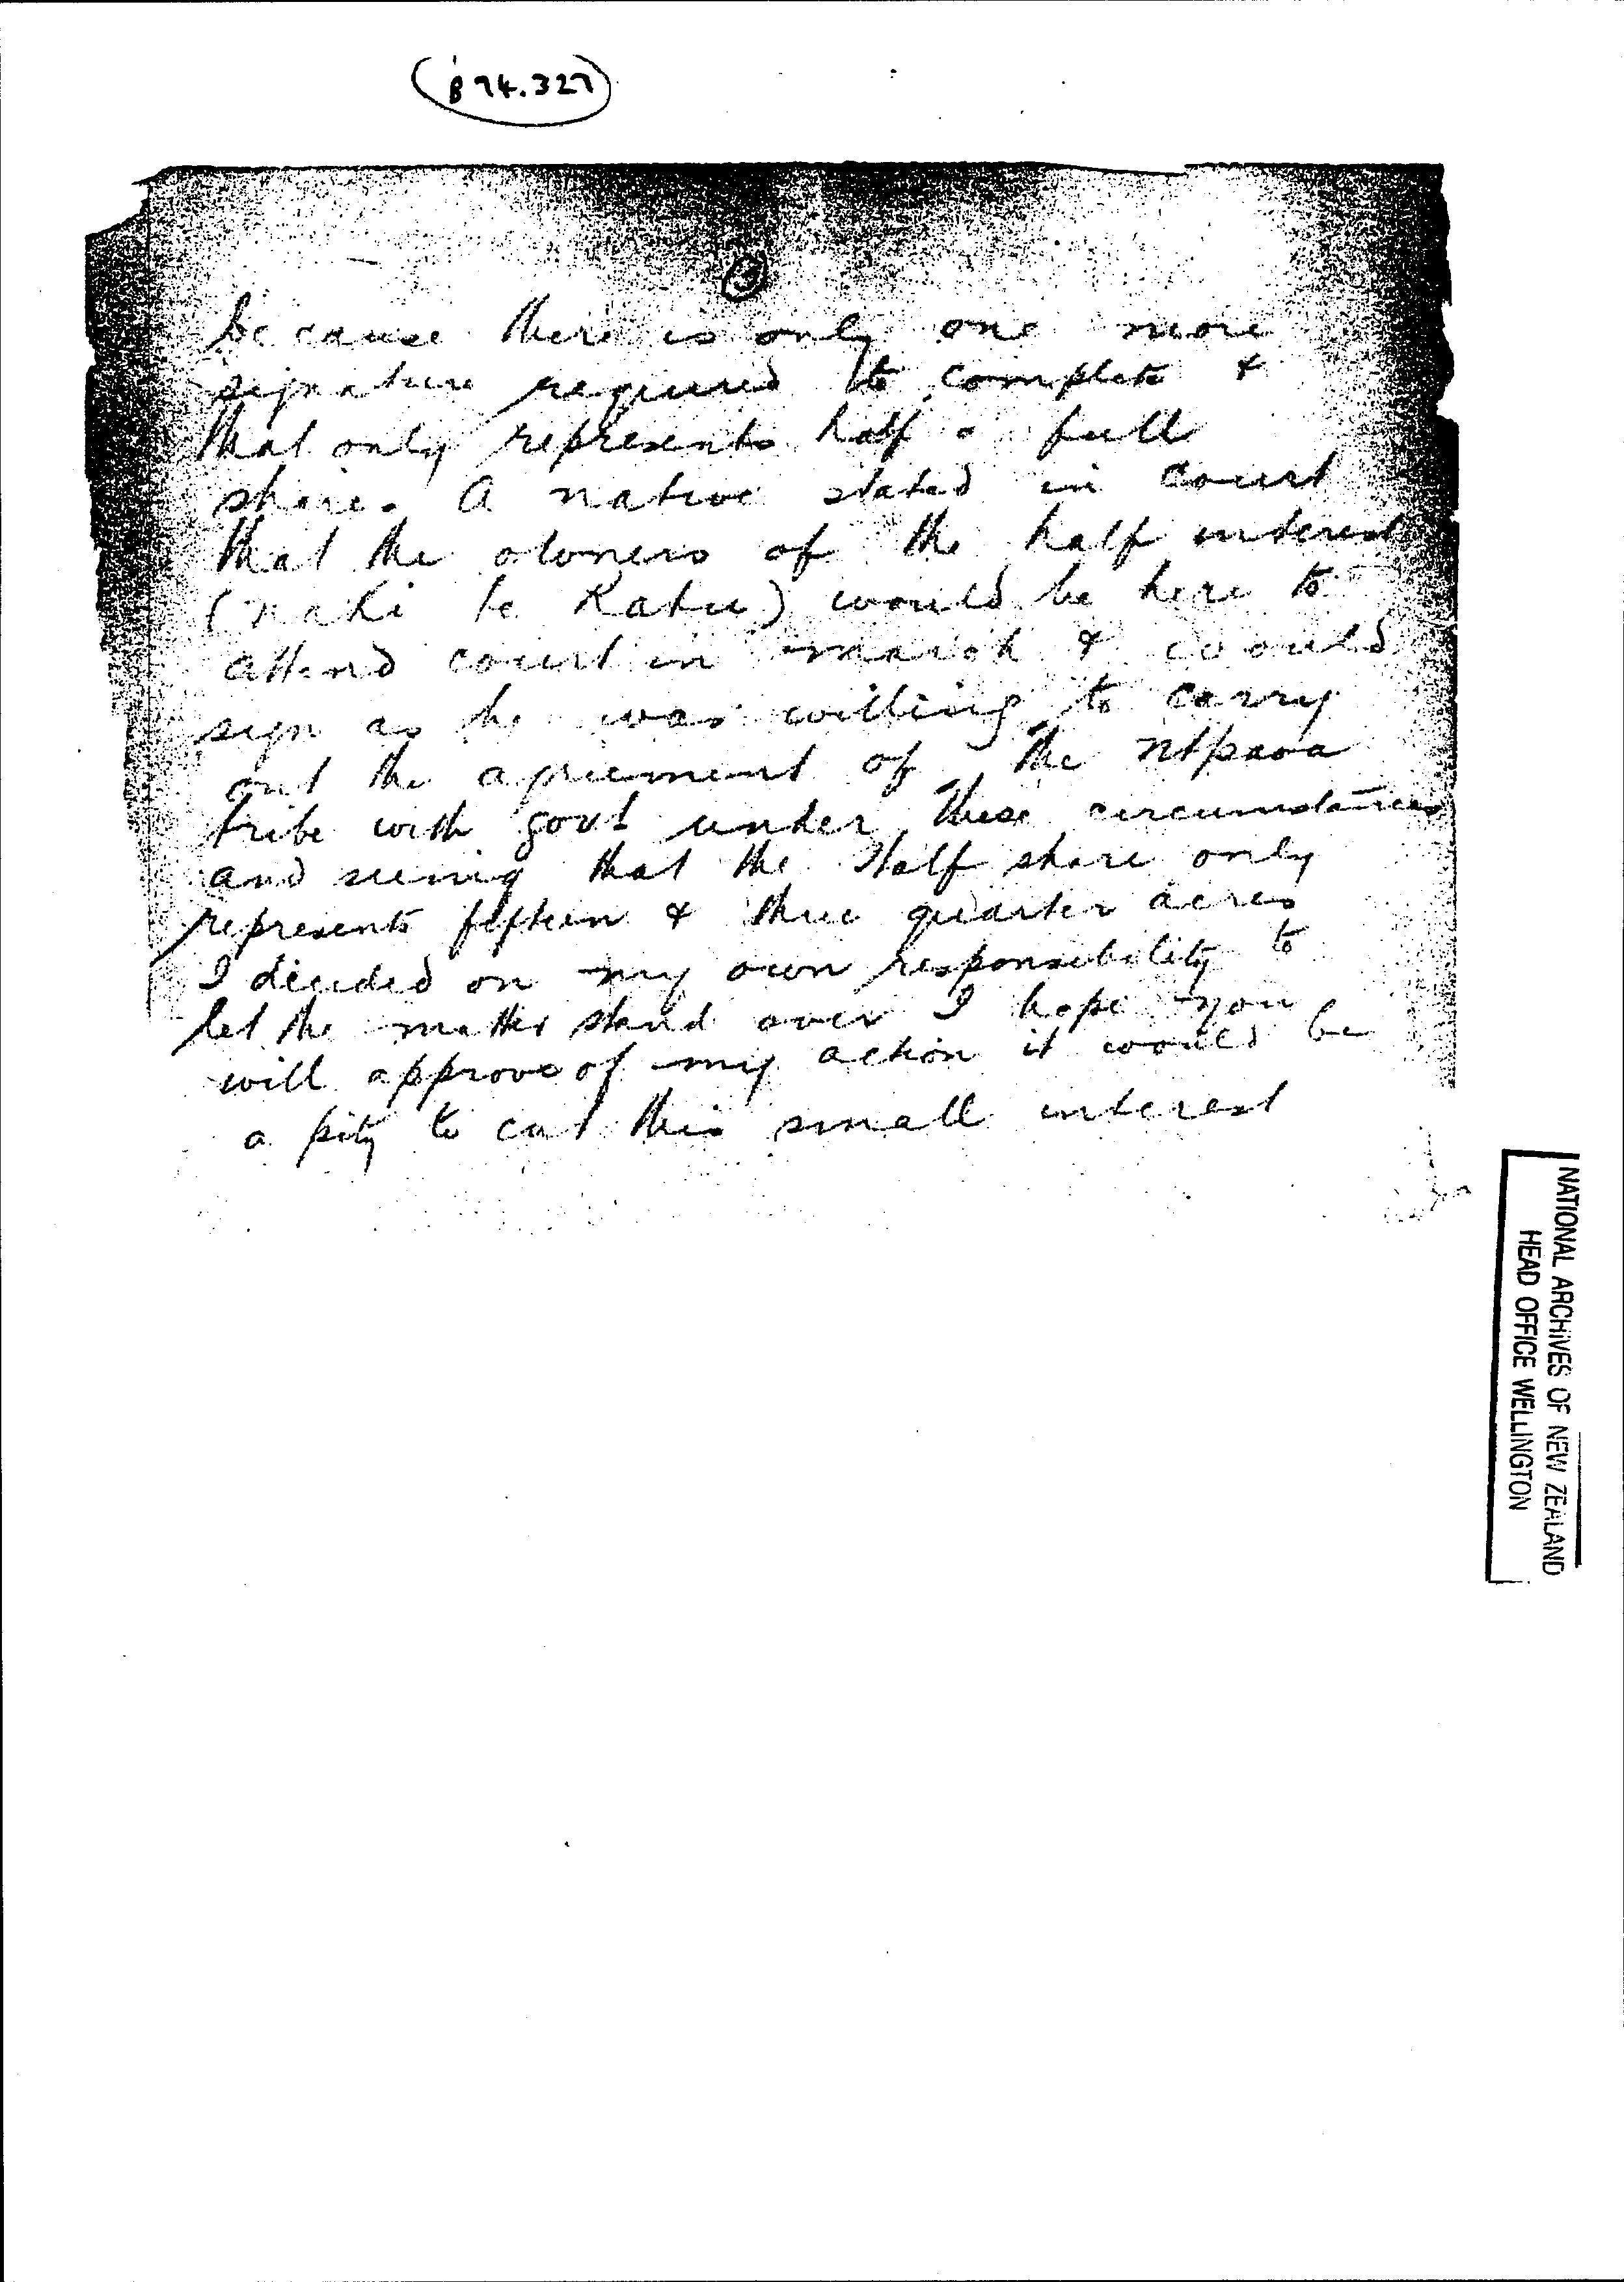 894.327
3
because there is only one more
signature required to complete &
that only represents half a full
share. A native stated in court
that the owners of the half interest
(naki te Ratu) would be here to
attend court in march & would
sign as he was willing to carry
out the agreement of the
tribe with govt under these circumstances
and seeing that the Half share only
represents fifteen & three quarter acres
I decided on my own responsibility to
let the matter stand over I hope you
will approve of my action it would be
a pity to cut this small interest
NATIONAL ARCHIVES OF NEW ZEALAND
HEAD OFFICE WELLINGTON